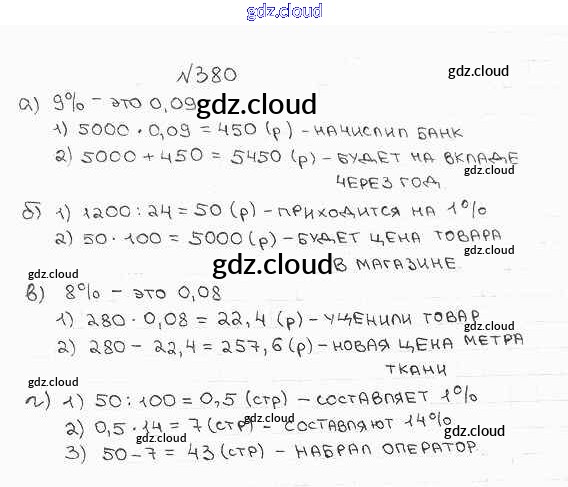 gdz.cloud
№380
gdz.cloud
а) 9% - это 0,09
gdz.cloud
1) 5000 · 0,09 = 450 (р) - начислил банк
2) 5000 + 450 = 5450 (р) - будет на вкладе
через год.
gdz.cloud
б) 1) 1200 : 24 = 50 (р) - приходится на 1%
2) 50 · 100 = 5000 (р) - будет цена товара
в магазине.
gdz.cloud
gdz.cloud
gdz.cloud
в) 8% - это 0,08
1) 280 · 0,08 = 22,4 (р) - уценили товар
2) 280 - 22,4 = 257,6 (р) - новая цена метра
ткани
gdz.cloud
gdz.cloud
г) 1) 50 : 100 = 0,5 (стр) - составляет 1%
2) 0,5 · 14 = 7 (стр) - составляют 14%
gdz.cloud
gdz.cloud
3) 50 - 7 = 43 (стр) - набрал оператор.
gdz.cloud